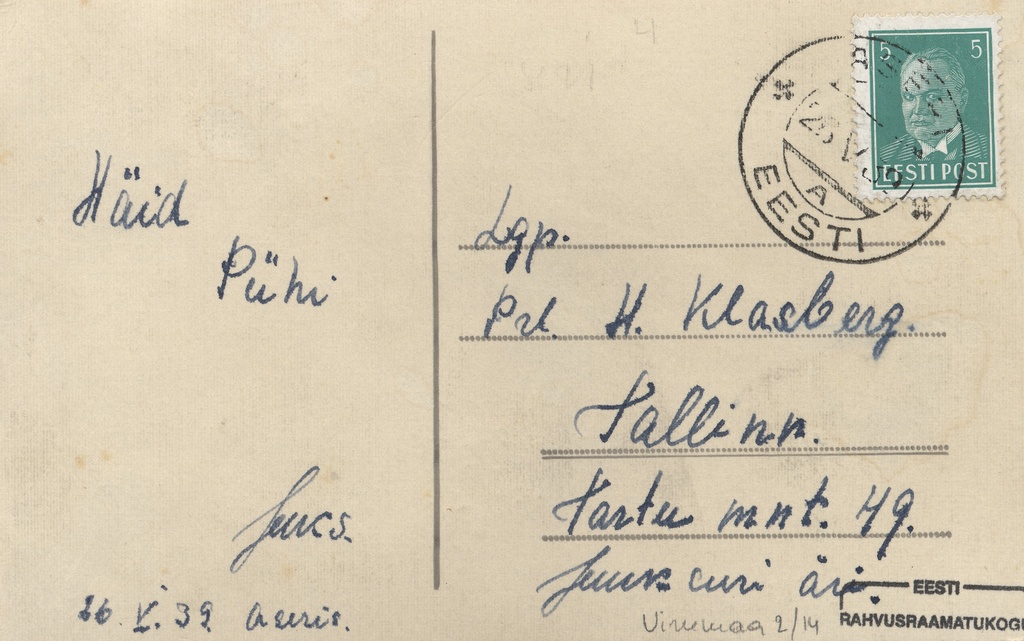 Häid
Pühi
Juks.
26. V. 39 Aseris.
Lgp.
Prl. H. Klasberg.
Tallinn.
Tartu mnt. 49.
Juuksuri äri.
5 5
EESTI POST
A
EESTI
EESTI
RAHVUSRAAMATUKOGU
Virumaa 2/14
4